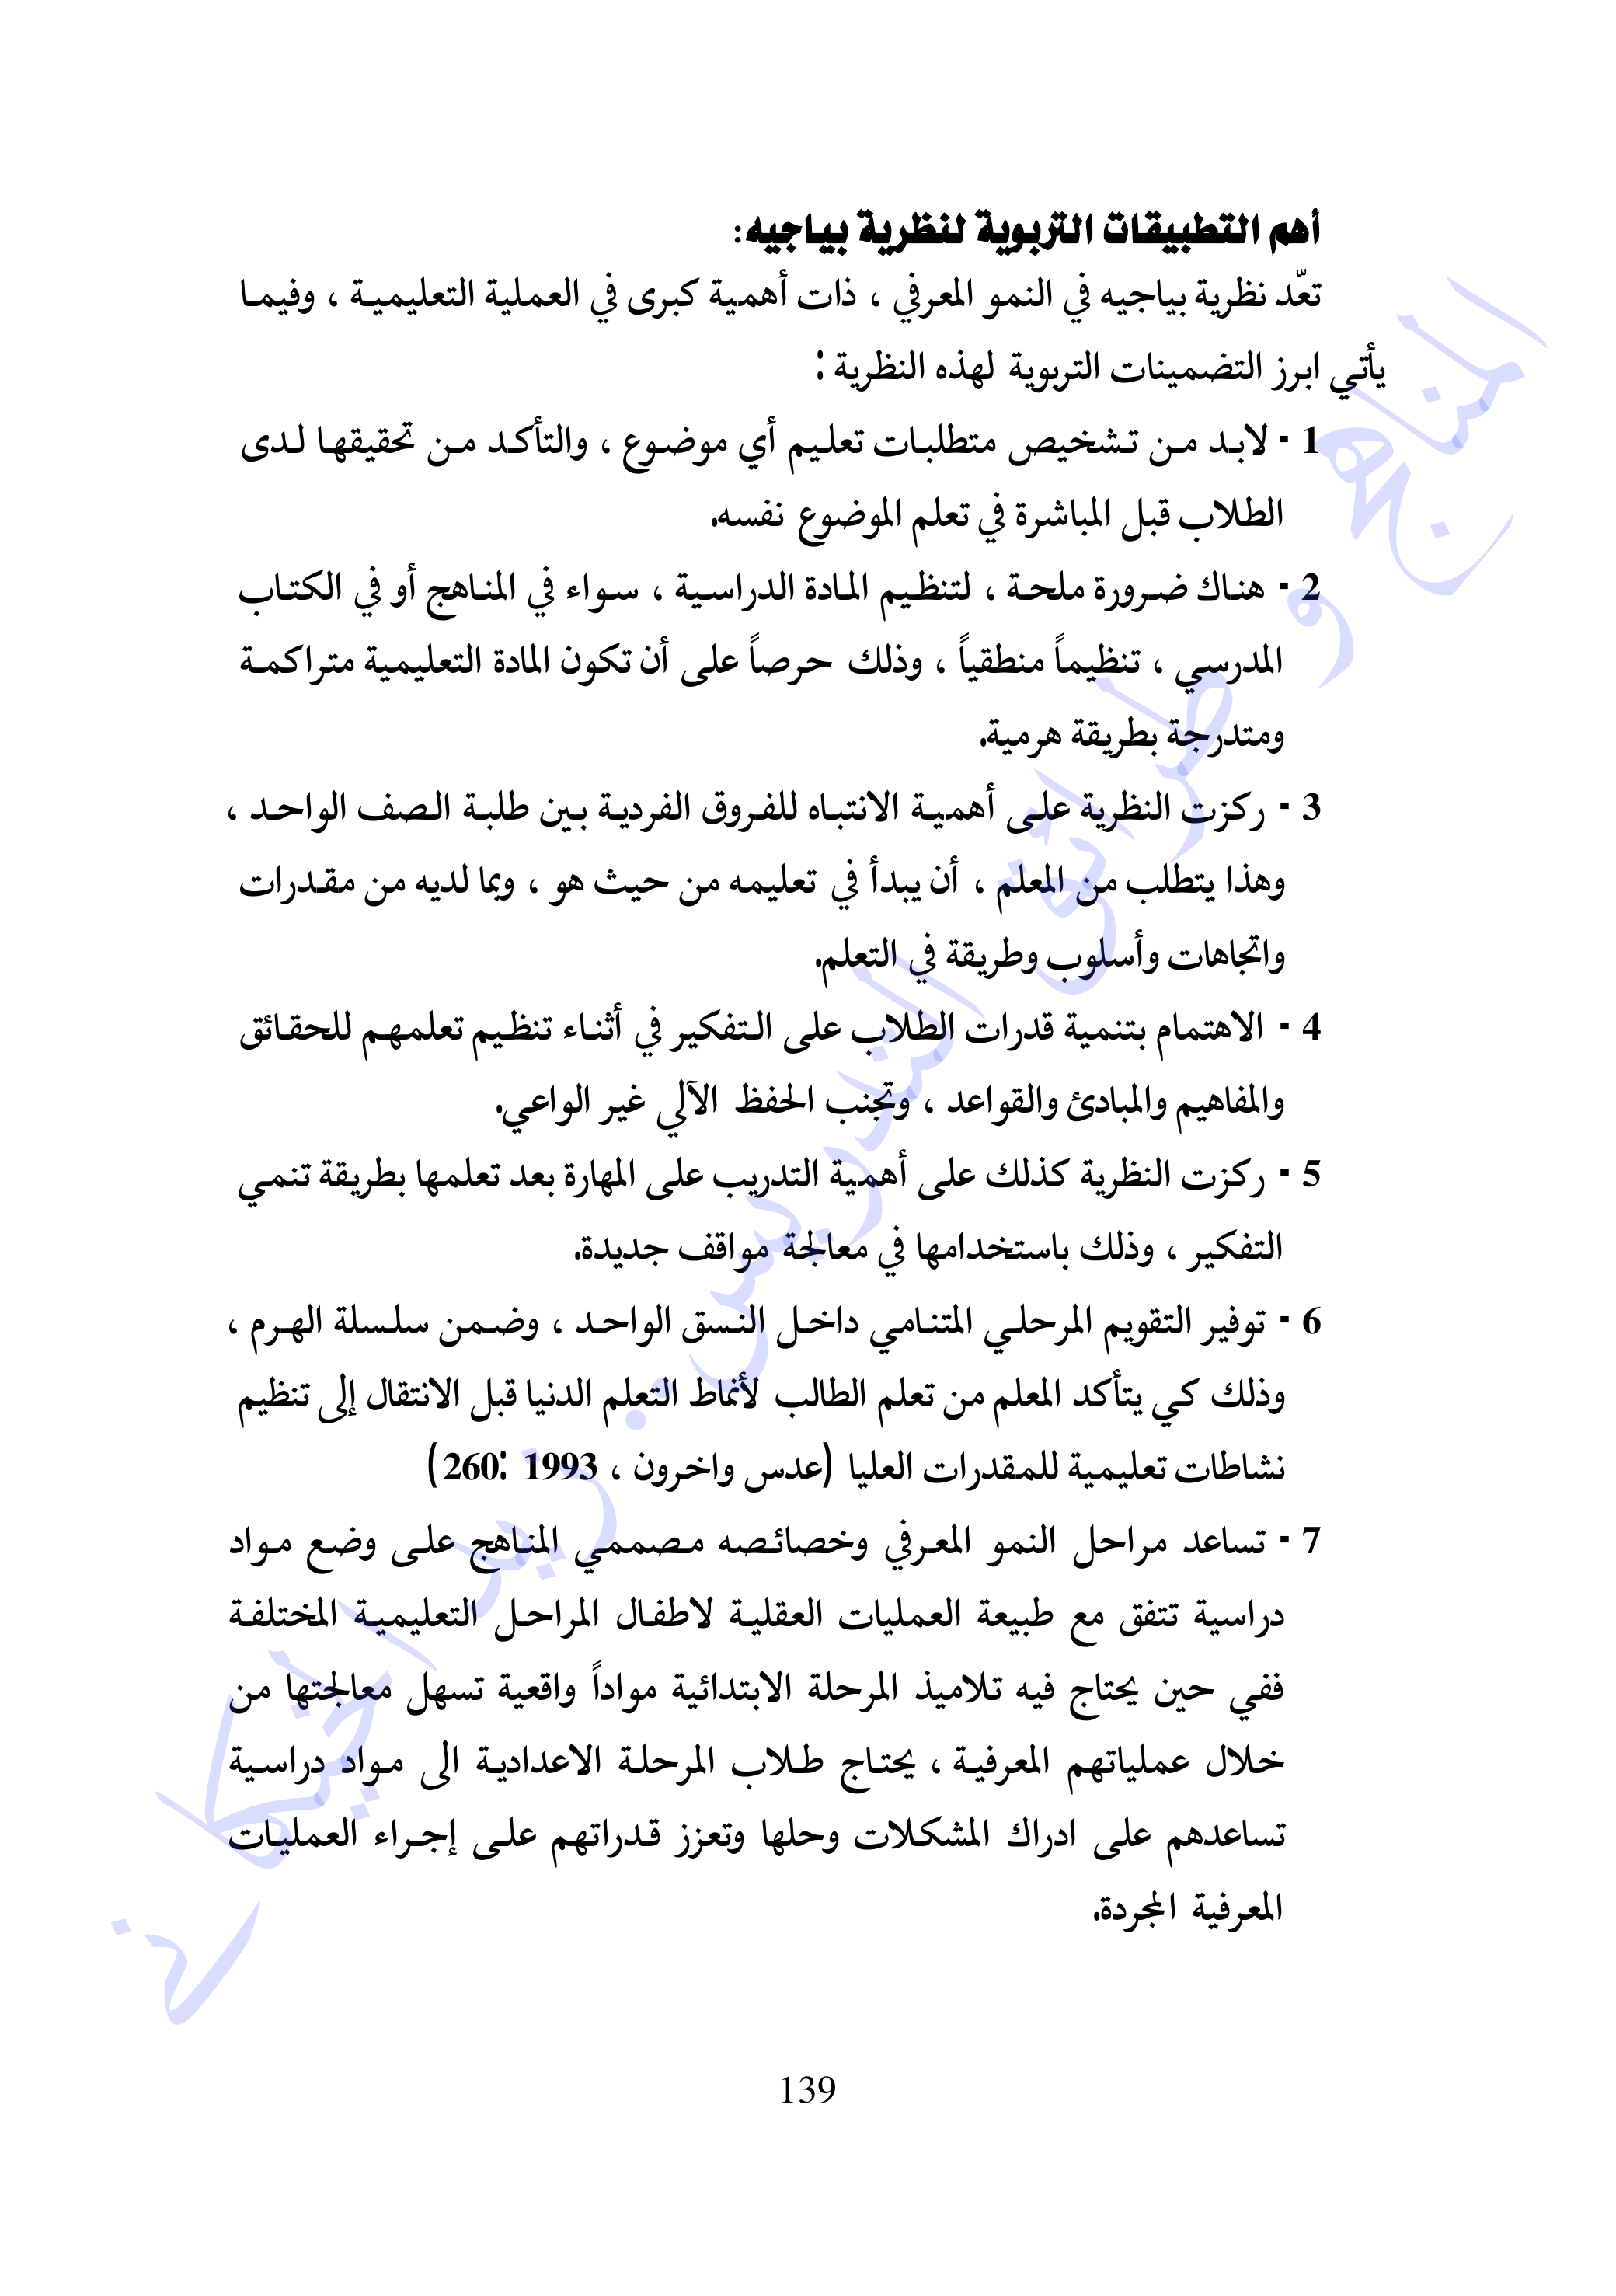 أهم التطبيقات التربوية لنظرية بياجيه:
تعّد نظرية بياجيه في النمو المعرفي ، ذات أهمية كبرى في العملية التعليمية ، وفيما
يأتي ابرز التضمينات التربوية لهذه النظرية :
1 - لابد من تشخيص متطلبات تعليم أي موضوع ، والتأكد من تحقيقها لدى
الطلاب قبل المباشرة في تعلم الموضوع نفسه.
2 - هناك ضرورة ملحة ، لتنظيم المادة الدراسية ، سواء في المناهج أو في الكتاب
المدرسي ، تنظيماً منطقياً ، وذلك حرصاً على أن تكون المادة التعليمية متراكمة
ومتدرجة بطريقة هرمية.
3 - ركزت النظرية على أهمية الانتباه للفروق الفردية بين طلبة الصف الواحد ،
وهذا يتطلب من المعلم ، أن يبدأ في تعليمه من حيث هو ، وبما لديه من مقدرات
واتجاهات وأسلوب وطريقة في التعلم.
4 - الاهتمام بتنمية قدرات الطلاب على التفكير في أثناء تنظيم تعلمهم للحقائق
والمفاهيم والمبادئ والقواعد ، وتجنب الحفظ الآلي غير الواعي.
5 - ركزت النظرية كذلك على أهمية التدريب على المهارة بعد تعلمها بطريقة تنمي
التفكير ، وذلك باستخدامها في معالجة مواقف جديدة.
6 - توفير التقويم المرحلي المتنامي داخل النسق الواحد ، وضمن سلسلة الهرم ،
وذلك كي يتأكد المعلم من تعلم الطالب لأنماط التعلم الدنيا قبل الانتقال إلى تنظيم
نشاطات تعليمية للمقدرات العليا (عدس واخرون ، 1993 :260)
7 - تساعد مراحل النمو المعرفي وخصائصه مصممي المناهج على وضع مواد
دراسية تتفق مع طبيعة العمليات العقلية لاطفال المراحل التعليمية المختلفة
ففي حين يحتاج فيه تلاميذ المرحلة الابتدائية مواداً واقعية تسهل معالجتها من
خلال عملياتهم المعرفية ، يحتاج طلاب المرحلة الاعدادية الى مواد دراسية
تساعدهم على ادراك المشكلات وحلها وتعزز قدراتهم على إجراء العمليات
المعرفية المجردة.
139